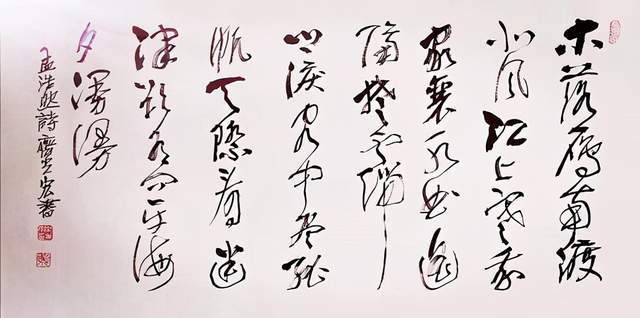 木落雁南渡
北风江上寒我
家襄水曲遥
隔楚云端
乡泪客中尽孤
帆天际看迷
津欲有问平海
夕漫漫
孟浩然詩 宏書